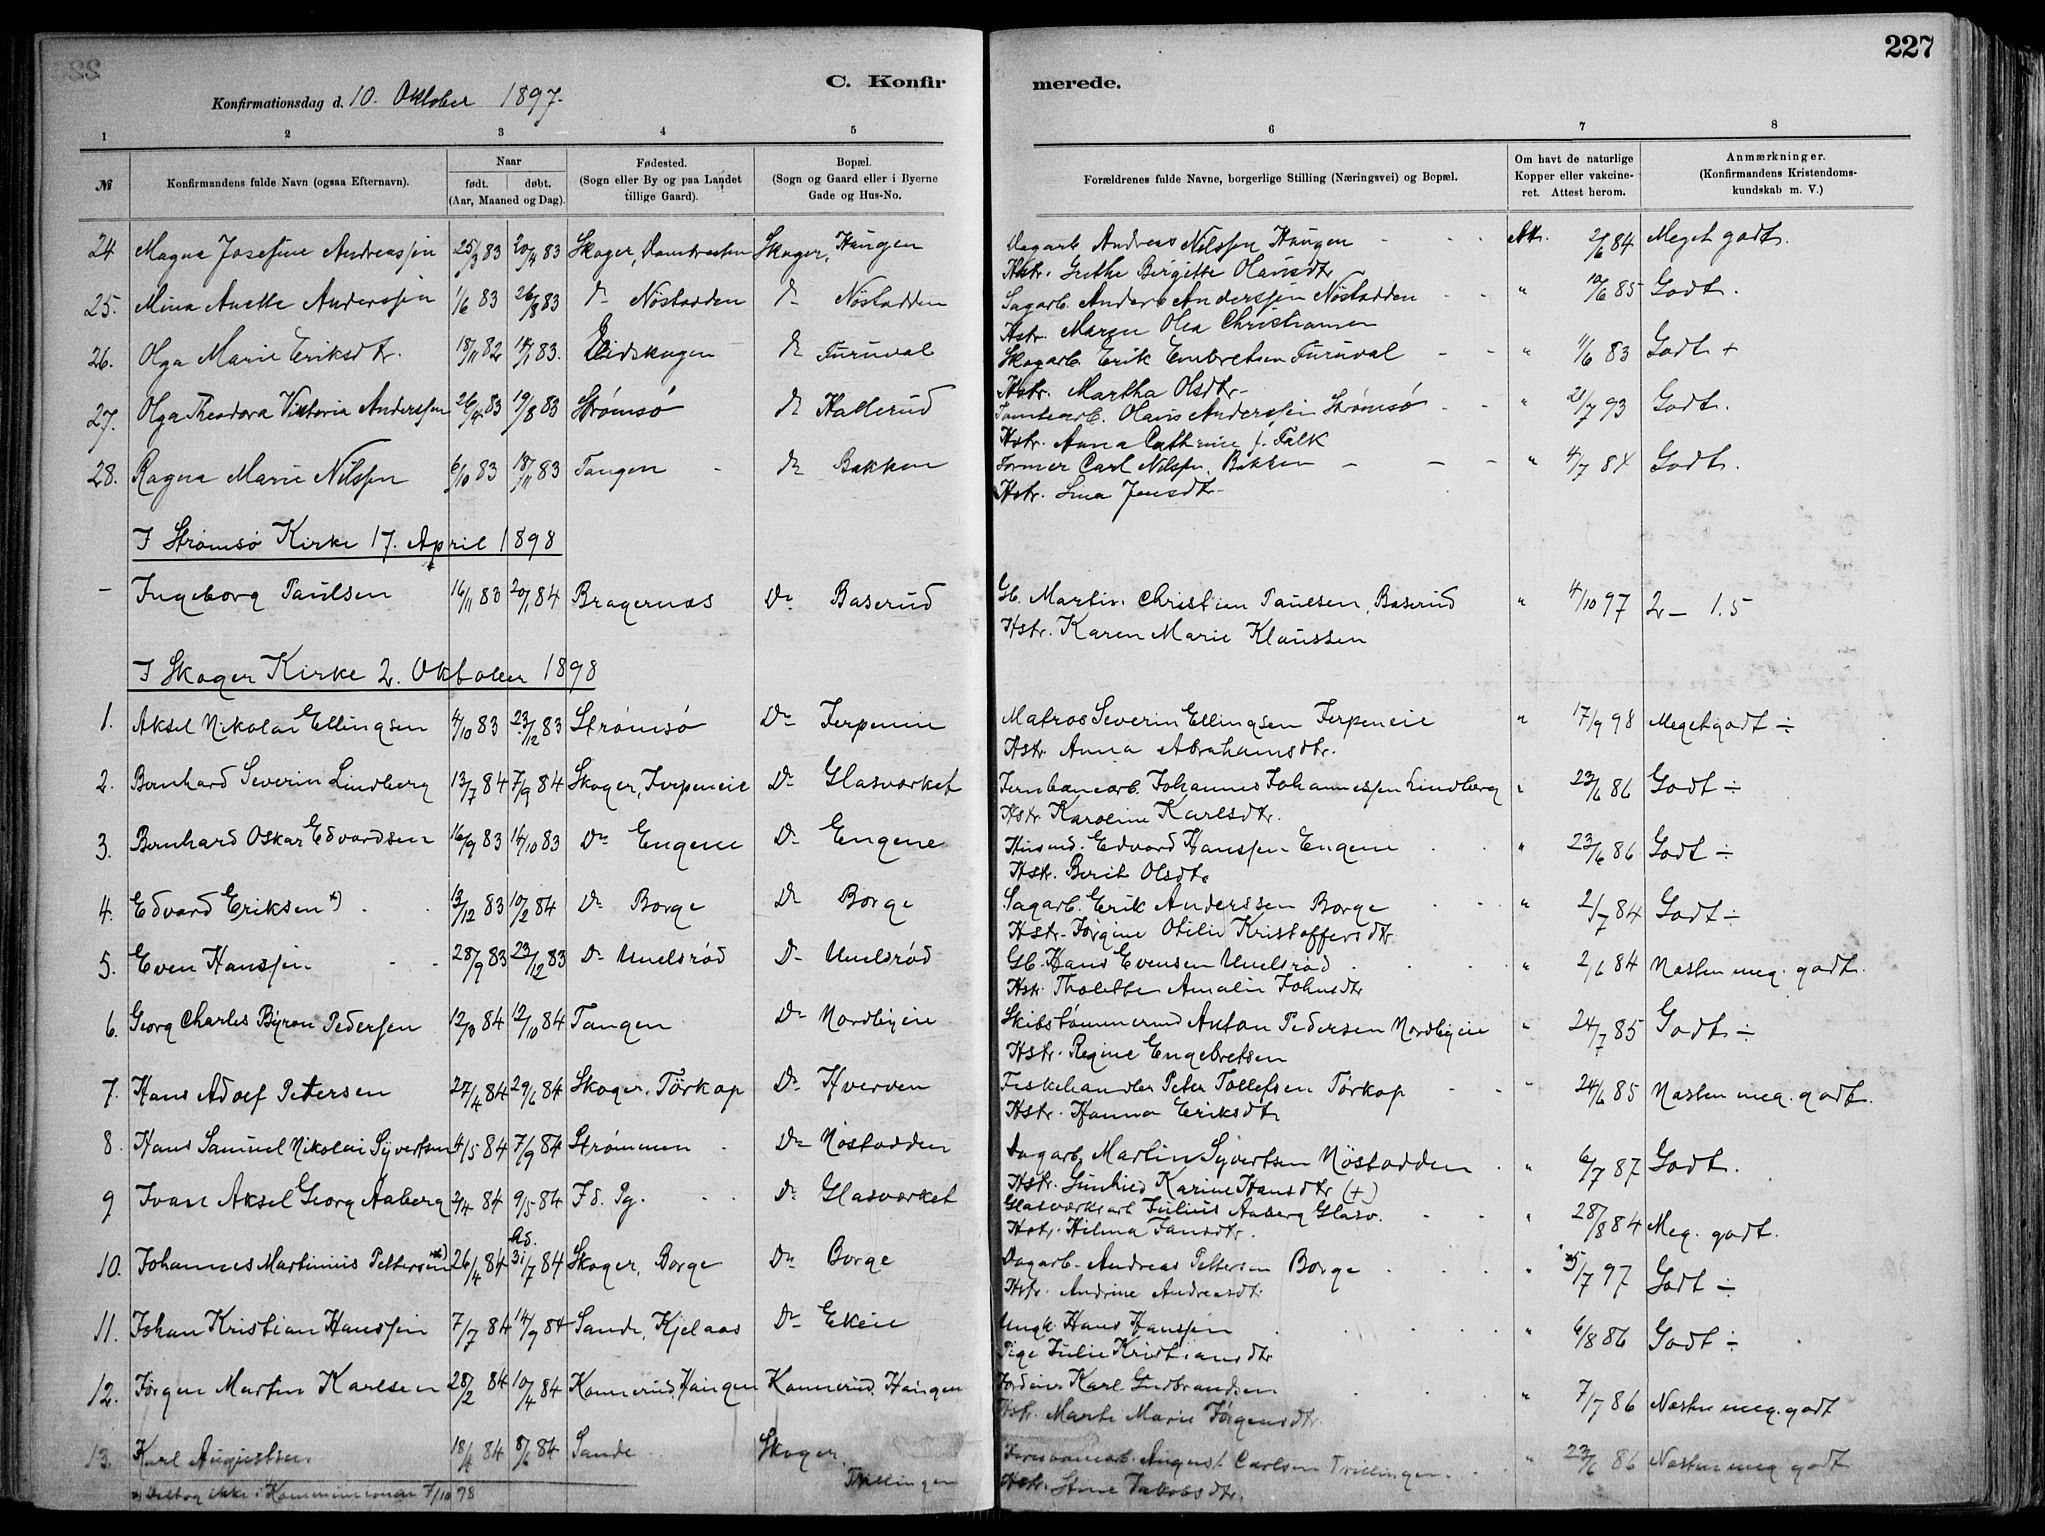 227
C. Konfir merede.
Konfirmationsdag d. 10. Oktober 1897.
1 2 3 4 5 6 7 8
№ Konfirmandens fulde Navn (ogsaa Efternavn). Naar født. døbt. (Aar, Maaned og Dag). Fødested. (Sogn eller By og paa Landet tillige Gaard). Bopæl. (Sogn og Gaard eller i Byerne Gade og Hus-No. Forældrenes fulde Navne, borgerlige Stilling (Næringsvei) og Bopæl. Om havt de naturlige Kopper eller vakcineret. Attest herom. Anmærkninger. (Konfirmandens Kristendomskundskab m. V.)
24 Magna Josefine Andreassen 25/3 83 20/4 83 Skoger, Skoger, Haugen Dagarb. Andreas Nilssen Haugen Att. 2/6 84 Meget godt.
Hstr. Guthe Birgitte Olausdtr
25. Mina Anette Anderssen 1/6 83 26/8 83 Dr Nöstodden Dr Nöstodden Sagarb. Anders Anderssen Nöstodden " 10/6 85 Godt.
Hstr. Maren Olea Christiansen
26. Olga Marie Eriksdtr. 18/11 82 14/1 83. Eidskogen Dr Furuval Skogarb. Erik Embretsen Furuval " 11/6 83 Godt +
Hstr. Martha Olsdtr
27. Olga Theodora Viktoria Anderssen 26/4 83 19/8 83 Strømsö Dr Hallerud Tomtearb. Olaus Anderssen Strømsö " 21/7 93 Godt.
Hstr. Anna Cathrine f. Falk
28. Ragna Marie Nilssen 6/10 83 18/11 83 Tangen Dr Bakken Former Carl Nilssen, Bakken " 4/7 84 Godt.
Hstr. Lina Jensdtr
I Strømsø Kirke 17. April 1898
- Ingeborg Paulsen 16/11 83 20/1 84 Bragernæs Do Baserud Gb. Martin Christian Paulsen, Baserud " 4/10 97 2 - 1.5
Hstr. Karen Marie Klaussen
I Skoger Kirke 2. Oktober 1898
1. Aksel Nikolai Ellingsen 4/10 83 23/12 83 Strømsö Do Ferpeneie Matros Severin Ellingsen Ferpeneie " 17/9 98 Meget godt ÷
Hstr. Anna Abrahamsdtr.
2. Bernhard Severin Lindberg 13/7 84 7/9 84 Skoger, Ferpeneie Do Glasværket Jernbanearb. Johannes Johannessen Lindberg " 23/6 86 Godt ÷
Hstr Karoline Karlsdtr.
3. Bernhard Oskar Edvardsen 16/9 83 14/10 83 Do Engene Do Engene Husmd. Edvard Hanssen Engene " 23/6 86 Godt ÷
Hstr. Berit Olsdtr
4. Edvard Eriksen *) 13/12 83 10/2 84 Do Borge Do Borge Sagarb. Erik Anderssen Borge " 2/7 84 Godt ÷
Hstr. Jørgine Otilie Kristoffersdtr
5. Even Hanssen 28/9 83 23/12 83 Do Unelsrød Do Unelsrød Gb. Hans Evensen Unelsrød " 2/6 84 Næsten meg. godt.
Hstr. Tholette Amalie Johnsdtr
6. Georg Charles Byron Pedersen 12/3 84 12/10 84 Tangen Do Nordbyeie Skibstømmermd Anton Pedersen Nordbyeie " 24/7 85 Godt ÷
Hstr. Regine Engebretsen
7. Hans Adolf Petersen 27/4 84 29/6 84 Skoger, Törkop Do Hverven Fiskehandler Peter Tollefsen Törkop " 24/6 85 Næsten meg. godt.
Hstr. Hanna Eriksdtr
8. Hans Samuel Nikolai Syvertsen 4/5 84 7/9 84 Strømmen Do Nöstodden Dagarb. Martin Syvertsen Nöstodden " 6/7 87 Godt.
Hstr. Gunhild Karine Hansdtr (+)
9 Ivan Aksel Georg Aaberg 2/4 84 9/5 84 I d. Pg. Do Glasværket Glasværksarb Julius Aaberg Glasv. " 28/8 84 Meg. godt.
Hstr. Hilma Jansdtr.
10. Johannes Martinius Pettersen **) 26/4 84 31/7 84 Skoger, Borge Do Borge Dagarb. Andreas Pettersen Borge " 5/7 97 Godt ÷
Hstr. Andrine Andreasdtr
11. Johan Kristian Hanssen 7/7 84 14/9 84 Sande, Kjelaas Do Ekeie Ungk. Hans Hanssen " 6/8 86 Godt ÷
Pige Julie Kristiansdtr
12. Jørgen Martin Karlsen 28/2 84 10/4 84 Konnerud, Haugen Konnerud, Haugen Jordeier Karl Gudbrandsen " 7/7 86 Næsten meg. godt
Hstr. Marte Marie Jörgensdtr.
13. Karl Augustsen 18/4 84 8/6 84 Sande Skoger, Trillingen August Carlsen Trillingen " 23/6 86 Næsten meg. godt
Hstr. Stine Jakobsdtr.
*) Deltog ikke i Kommunionen 7/10 98